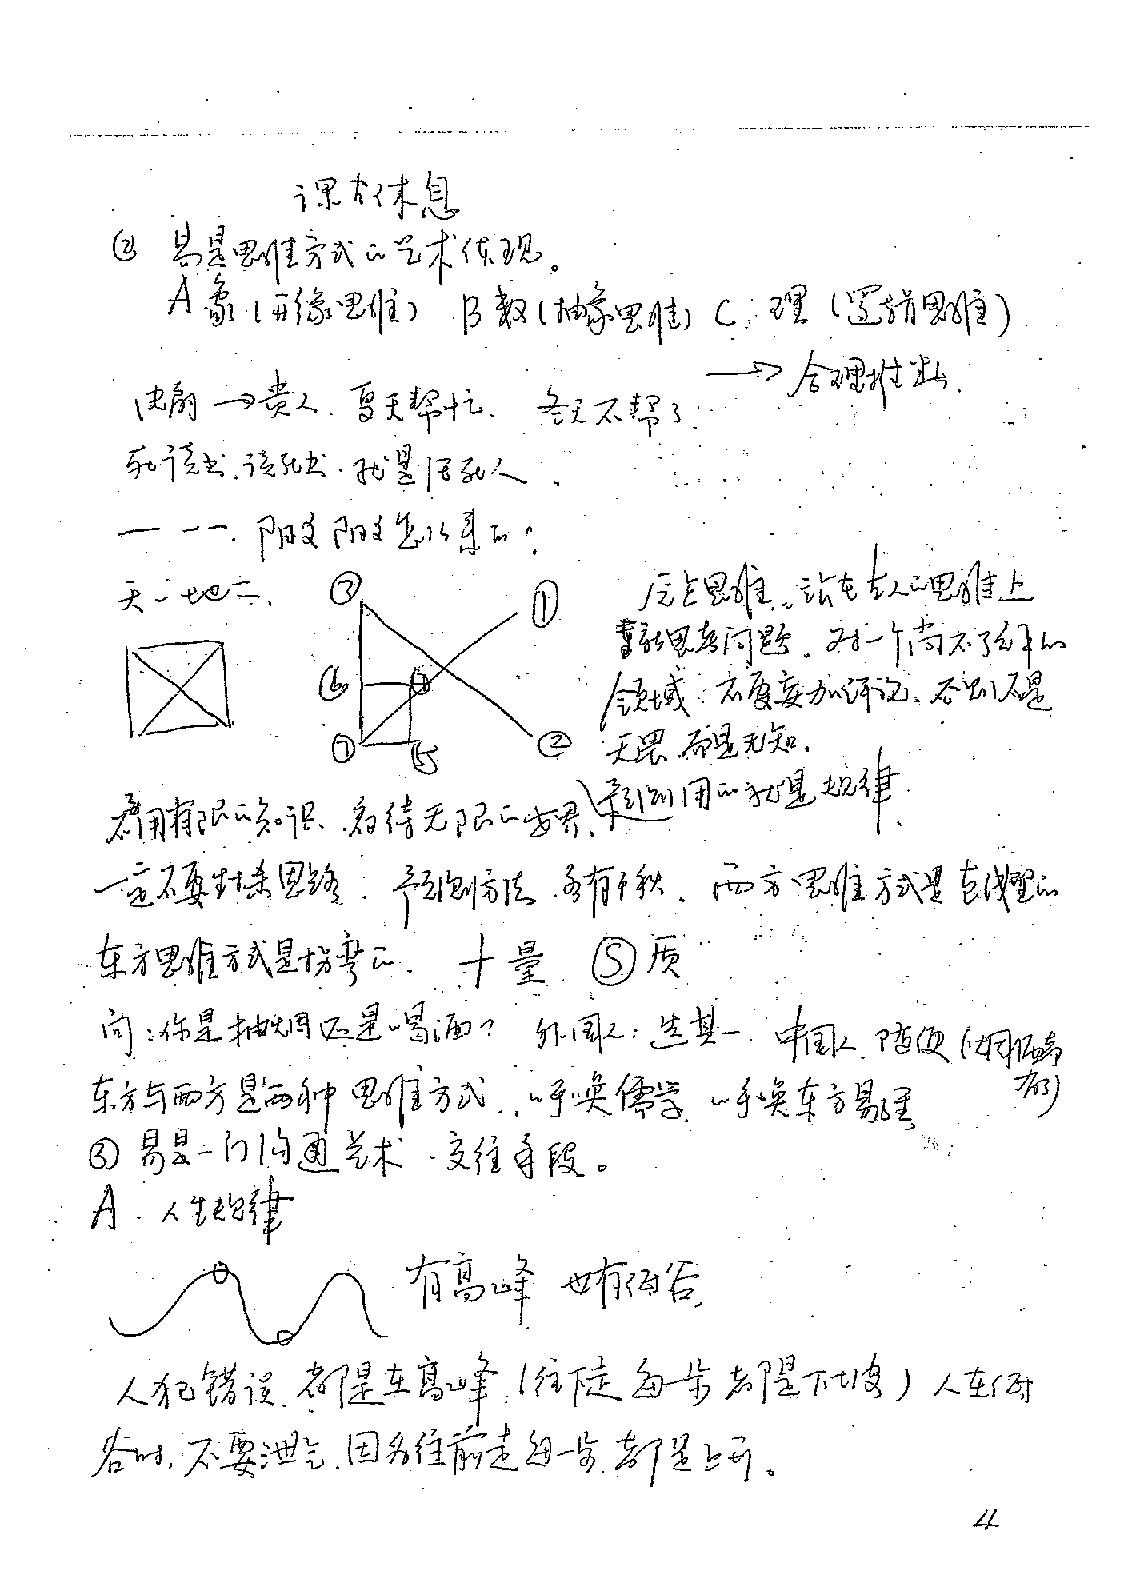 课右休息
② 易是思维方式的艺术体现。
A 象(形象思维) B 数(抽象思维) C:理(逻辑思维)
→合理推出.
→贵人.夏天帮忙.冬天不帮了.
死读书.读死书.就是活死人.
一 --.阳爻阴爻怎么来的?
天一地二.
③ ①
⑥
⑦ 5 ②
思维.站在古人的思维上
重新思考问题.对一个尚不了解的
领域:不要妄加评说.否则不是
无畏.而是无知.
预测用的就是规律.
用有限的知识.看待无限的世界.
一定不要封杀思路.预测方法.各有千秋.西方思维方式是直线型的
东方思维方式是拐弯的.十量.⑤质
问:你是抽烟还是喝酒? 外国人:选其一.中国人.随便(如同两者
都)
东方与西方是两种思维方式.呼唤儒学.呼唤东方易经
③ 易是一门沟通艺术.交往手段。
A.人生规律
有高峰 也有低谷.
人犯错误.都是在高峰.(往下走每一步都是下坡)人在低
谷时,不要泄气.因为往前走每一步.都是上升。
4